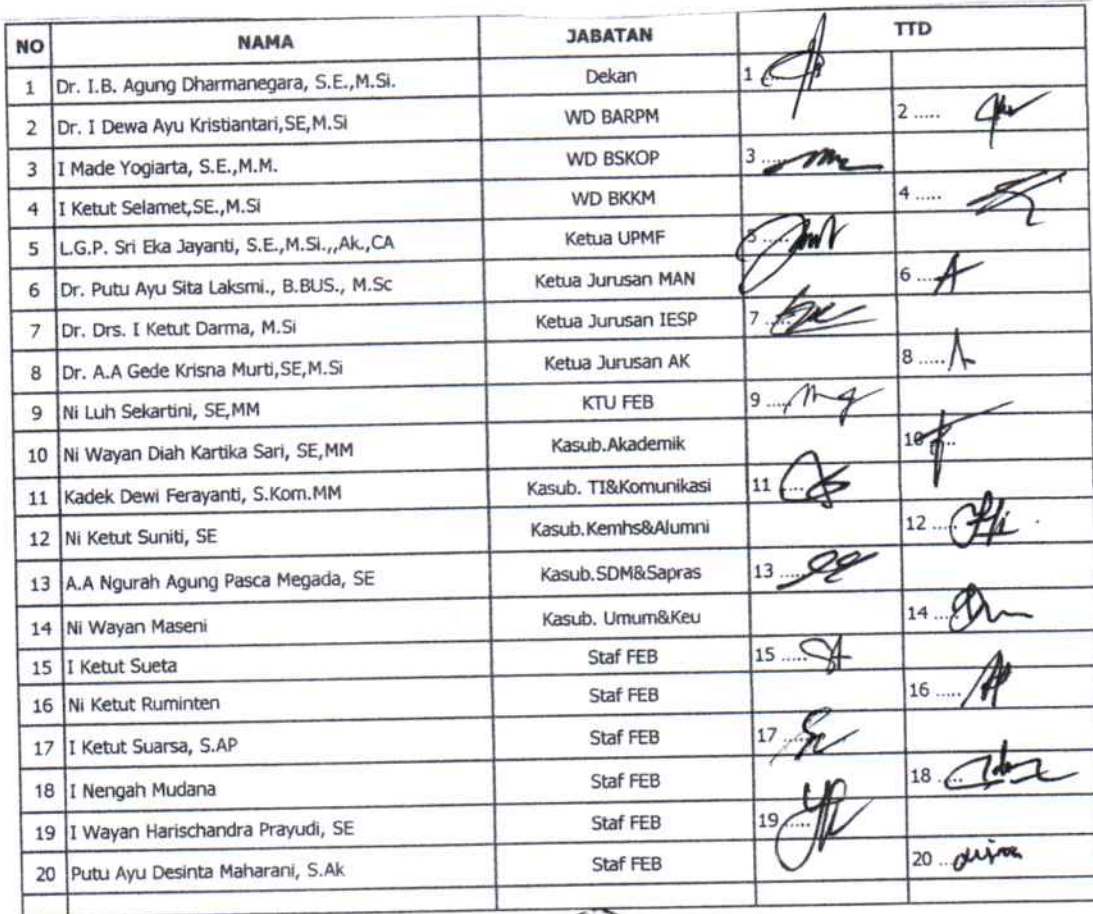 NO NAMA JABATAN TTD
1 Dr. I.B. Agung Dharmanegara, S.E.,M.Si. Dekan 1
2 Dr. I Dewa Ayu Kristiantari,SE,M.Si WD BARPM 2 .....
3 I Made Yogiarta, S.E.,M.M. WD BSKOP 3 .....
4 I Ketut Selamet,SE.,M.Si WD BKKM 4 .....
5 L.G.P. Sri Eka Jayanti, S.E.,M.Si.,,Ak.,CA Ketua UPMF 5 .....
6 Dr. Putu Ayu Sita Laksmi., B.BUS., M.Sc Ketua Jurusan MAN 6 .....
7 Dr. Drs. I Ketut Darma, M.Si Ketua Jurusan IESP 7 .....
8 Dr. A.A Gede Krisna Murti,SE,M.Si Ketua Jurusan AK 8 .....
9 Ni Luh Sekartini, SE,MM KTU FEB 9 .....
10 Ni Wayan Diah Kartika Sari, SE,MM Kasub.Akademik 10 .....
11 Kadek Dewi Ferayanti, S.Kom.MM Kasub. TI&Komunikasi 11 .....
12 Ni Ketut Suniti, SE Kasub.Kemhs&Alumni 12 .....
13 A.A Ngurah Agung Pasca Megada, SE Kasub.SDM&Sapras 13 .....
14 Ni Wayan Maseni Kasub. Umum&Keu 14 .....
15 I Ketut Sueta Staf FEB 15 .....
16 Ni Ketut Ruminten Staf FEB 16 .....
17 I Ketut Suarsa, S.AP Staf FEB 17 .....
18 I Nengah Mudana Staf FEB 18 .....
19 I Wayan Harischandra Prayudi, SE Staf FEB 19 .....
20 Putu Ayu Desinta Maharani, S.Ak Staf FEB 20 .....